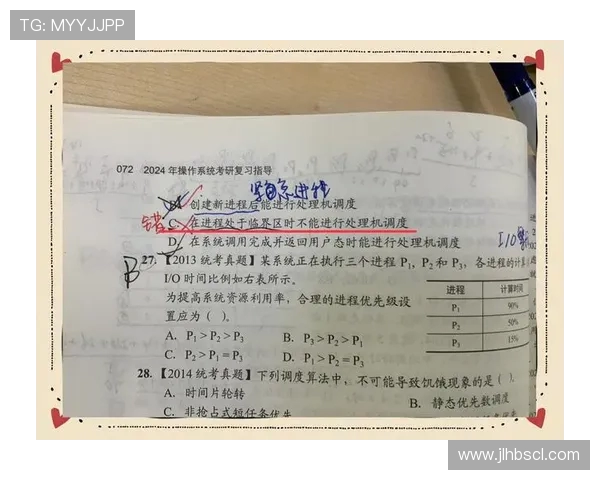 TG: MYYJJPP
072 2024 年操作系统考研复习指导
紧急进程
B. 创建新进程后能进行处理机调度
错 C. 在进程处于临界区时不能进行处理机调度
D. 在系统调用完成并返回用户态时能进行处理机调度
B 27. 【2013 统考真题】某系统正在执行三个进程 P₁, P₂ 和 P₃, 各进程的计算
I/O 时间比例如右表所示。
为提高系统资源利用率，合理的进程优先级设
置应为（ ）。
A. P₁ > P₂ > P₃ B. P₃ > P₂ > P₁
C. P₂ > P₁ = P₃ D. P₁ > P₂ = P₃
进程 计算时间
P₁ 90%
P₂ 50%
P₃ 15%
28. 【2014 统考真题】下列调度算法中，不可能导致饥饿现象的是（ ）。
A. 时间片轮转 B. 静态优先数调度
C. 非抢占式短任务优先
www.jlhbscl.com